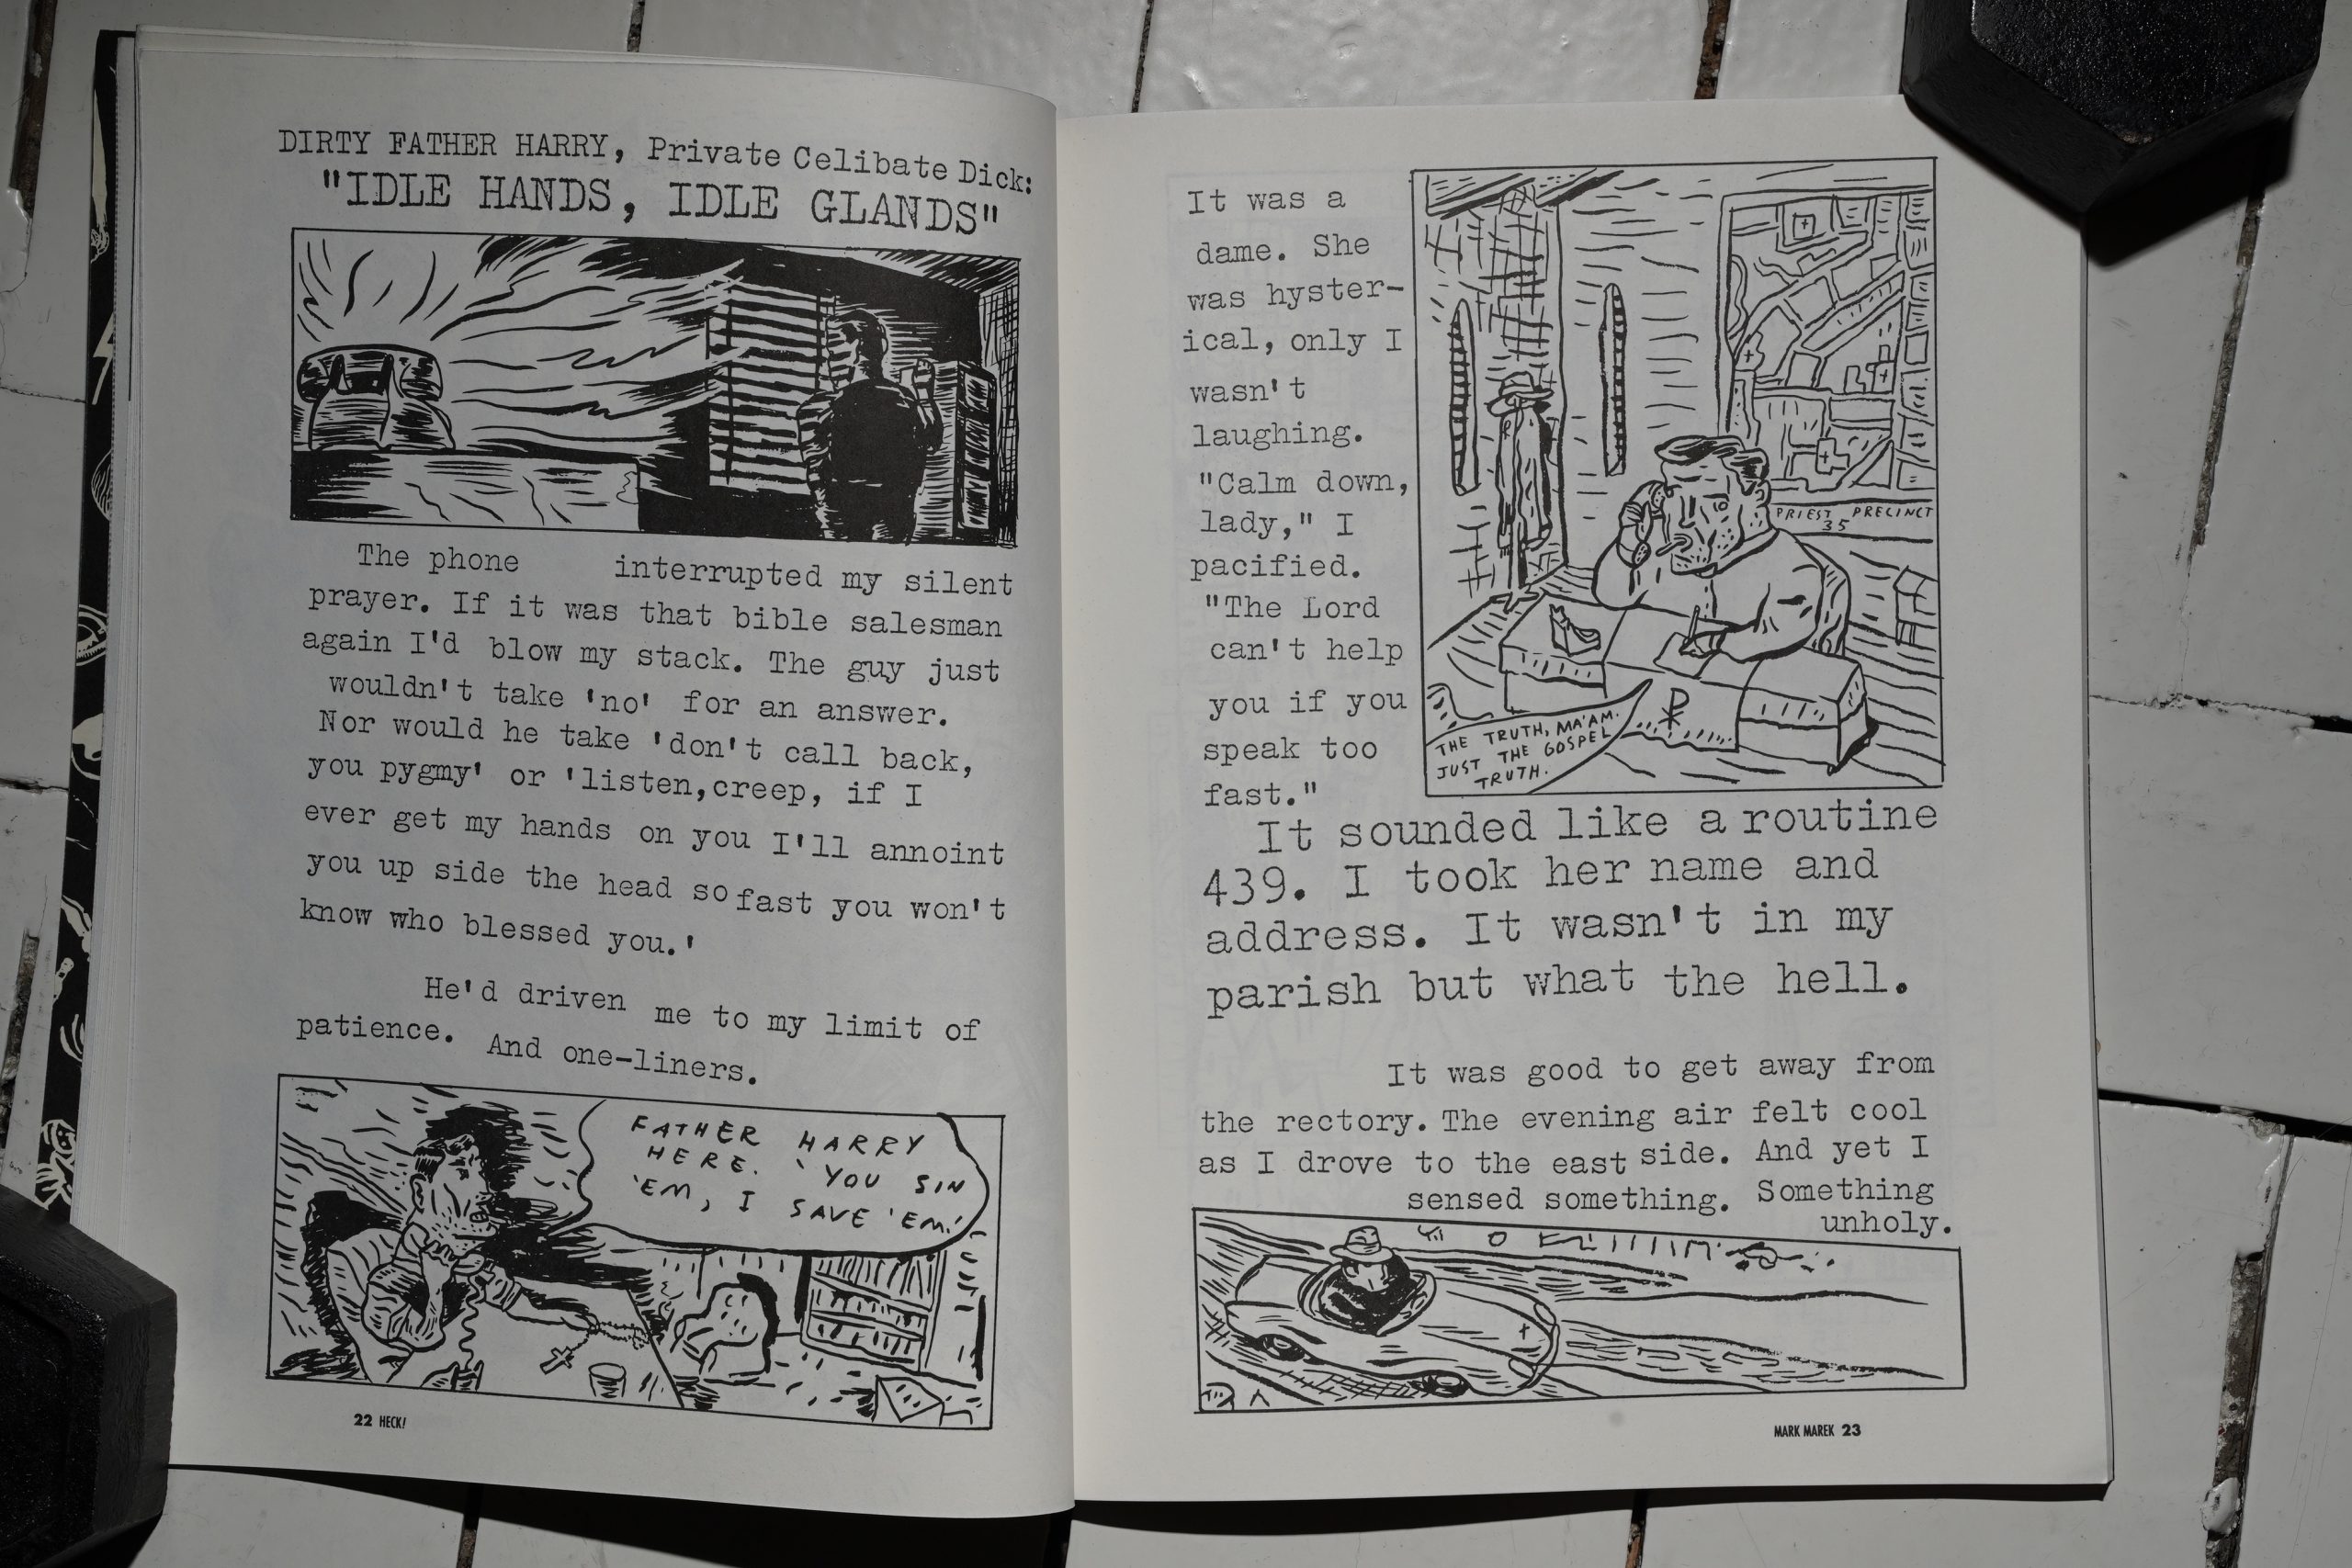 DIRTY FATHER HARRY, Private Celibate Dick:
"IDLE HANDS, IDLE GLANDS"
The phone interrupted my silent
prayer. If it was that bible salesman
again I'd blow my stack. The guy just
wouldn't take 'no' for an answer.
Nor would he take 'don't call back,
you pygmy' or 'listen,creep, if I
ever get my hands on you I'll annoint
you up side the head so fast you won't
know who blessed you.'
He'd driven me to my limit of
patience. And one-liners.
FATHER HARRY
HERE. 'YOU SIN
'EM, I SAVE 'EM.'
22 HECK!
It was a
dame. She
was hyster-
ical, only I
wasn't
laughing.
"Calm down,
lady," I
pacified.
"The Lord
can't help
you if you
speak too
fast."
PRIEST PRECINCT
35
THE TRUTH, MA'AM.
JUST THE GOSPEL
TRUTH.
It sounded like a routine
439. I took her name and
address. It wasn't in my
parish but what the hell.
It was good to get away from
the rectory. The evening air felt cool
as I drove to the east side. And yet I
sensed something. Something
unholy.
MARK MAREK 23